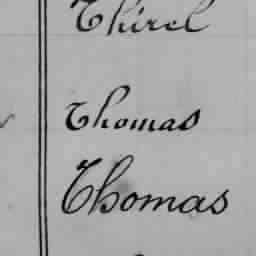 Thirel
Thomas
Thomas